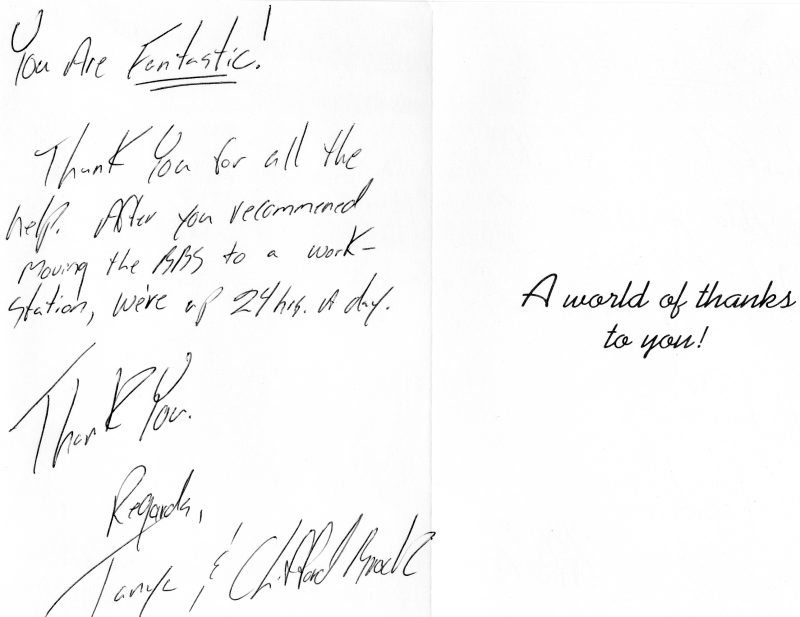 You Are Fantastic!
Thank You for all the
help. After you recommened
moving the BBS to a work-
station, we're up 24 hrs. A day.
Thank You.
Regards,
Tanya & Clifford
A world of thanks
to you!